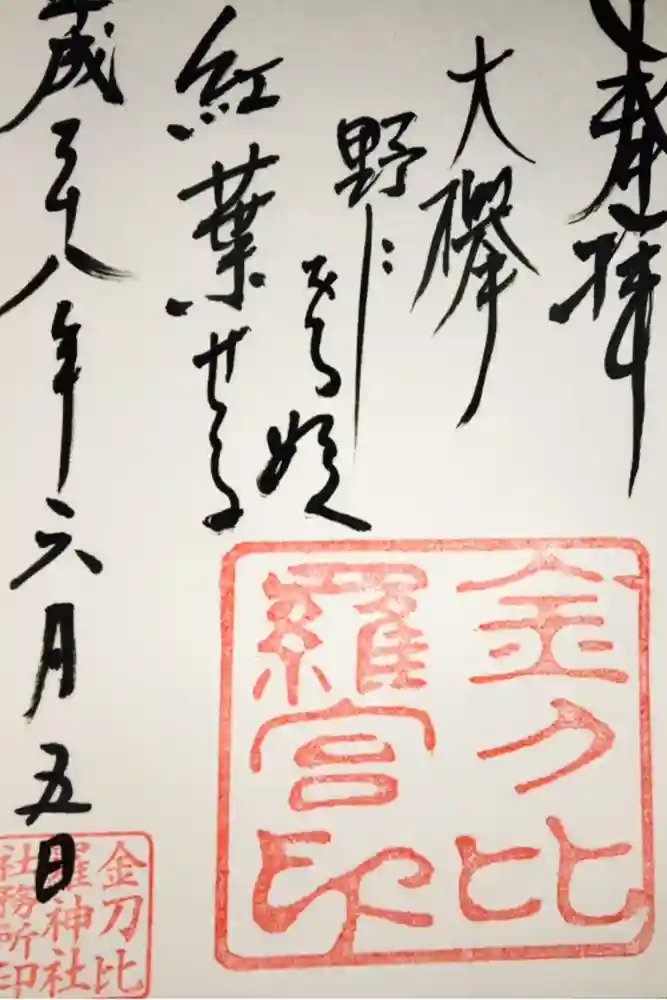 奉拝
大欅
野に立
紅葉せる
平成二十八年六月五日
金刀比
羅宮印
金刀比
羅神社
社務所印